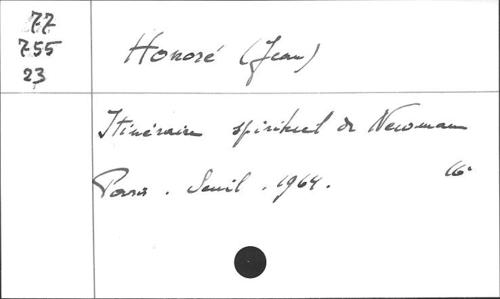 77
755
23
Honoré (Jean)
Itinéraire spirituel de Newman
Paris. Seuil. 1964. 16°